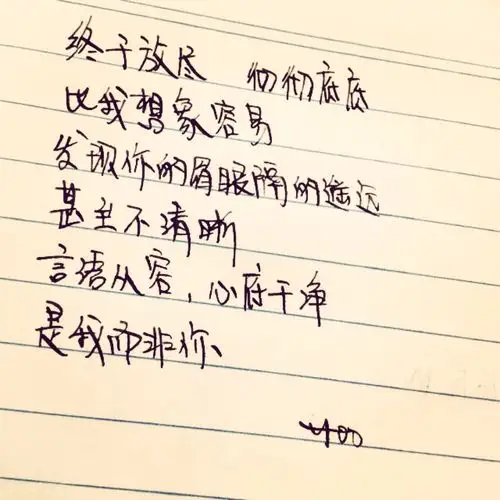 终于放尽 彻彻底底
比我想象容易
发现你的眉眼隔的遥远
甚至不清晰
言语从容,心府干净
是我而非你、